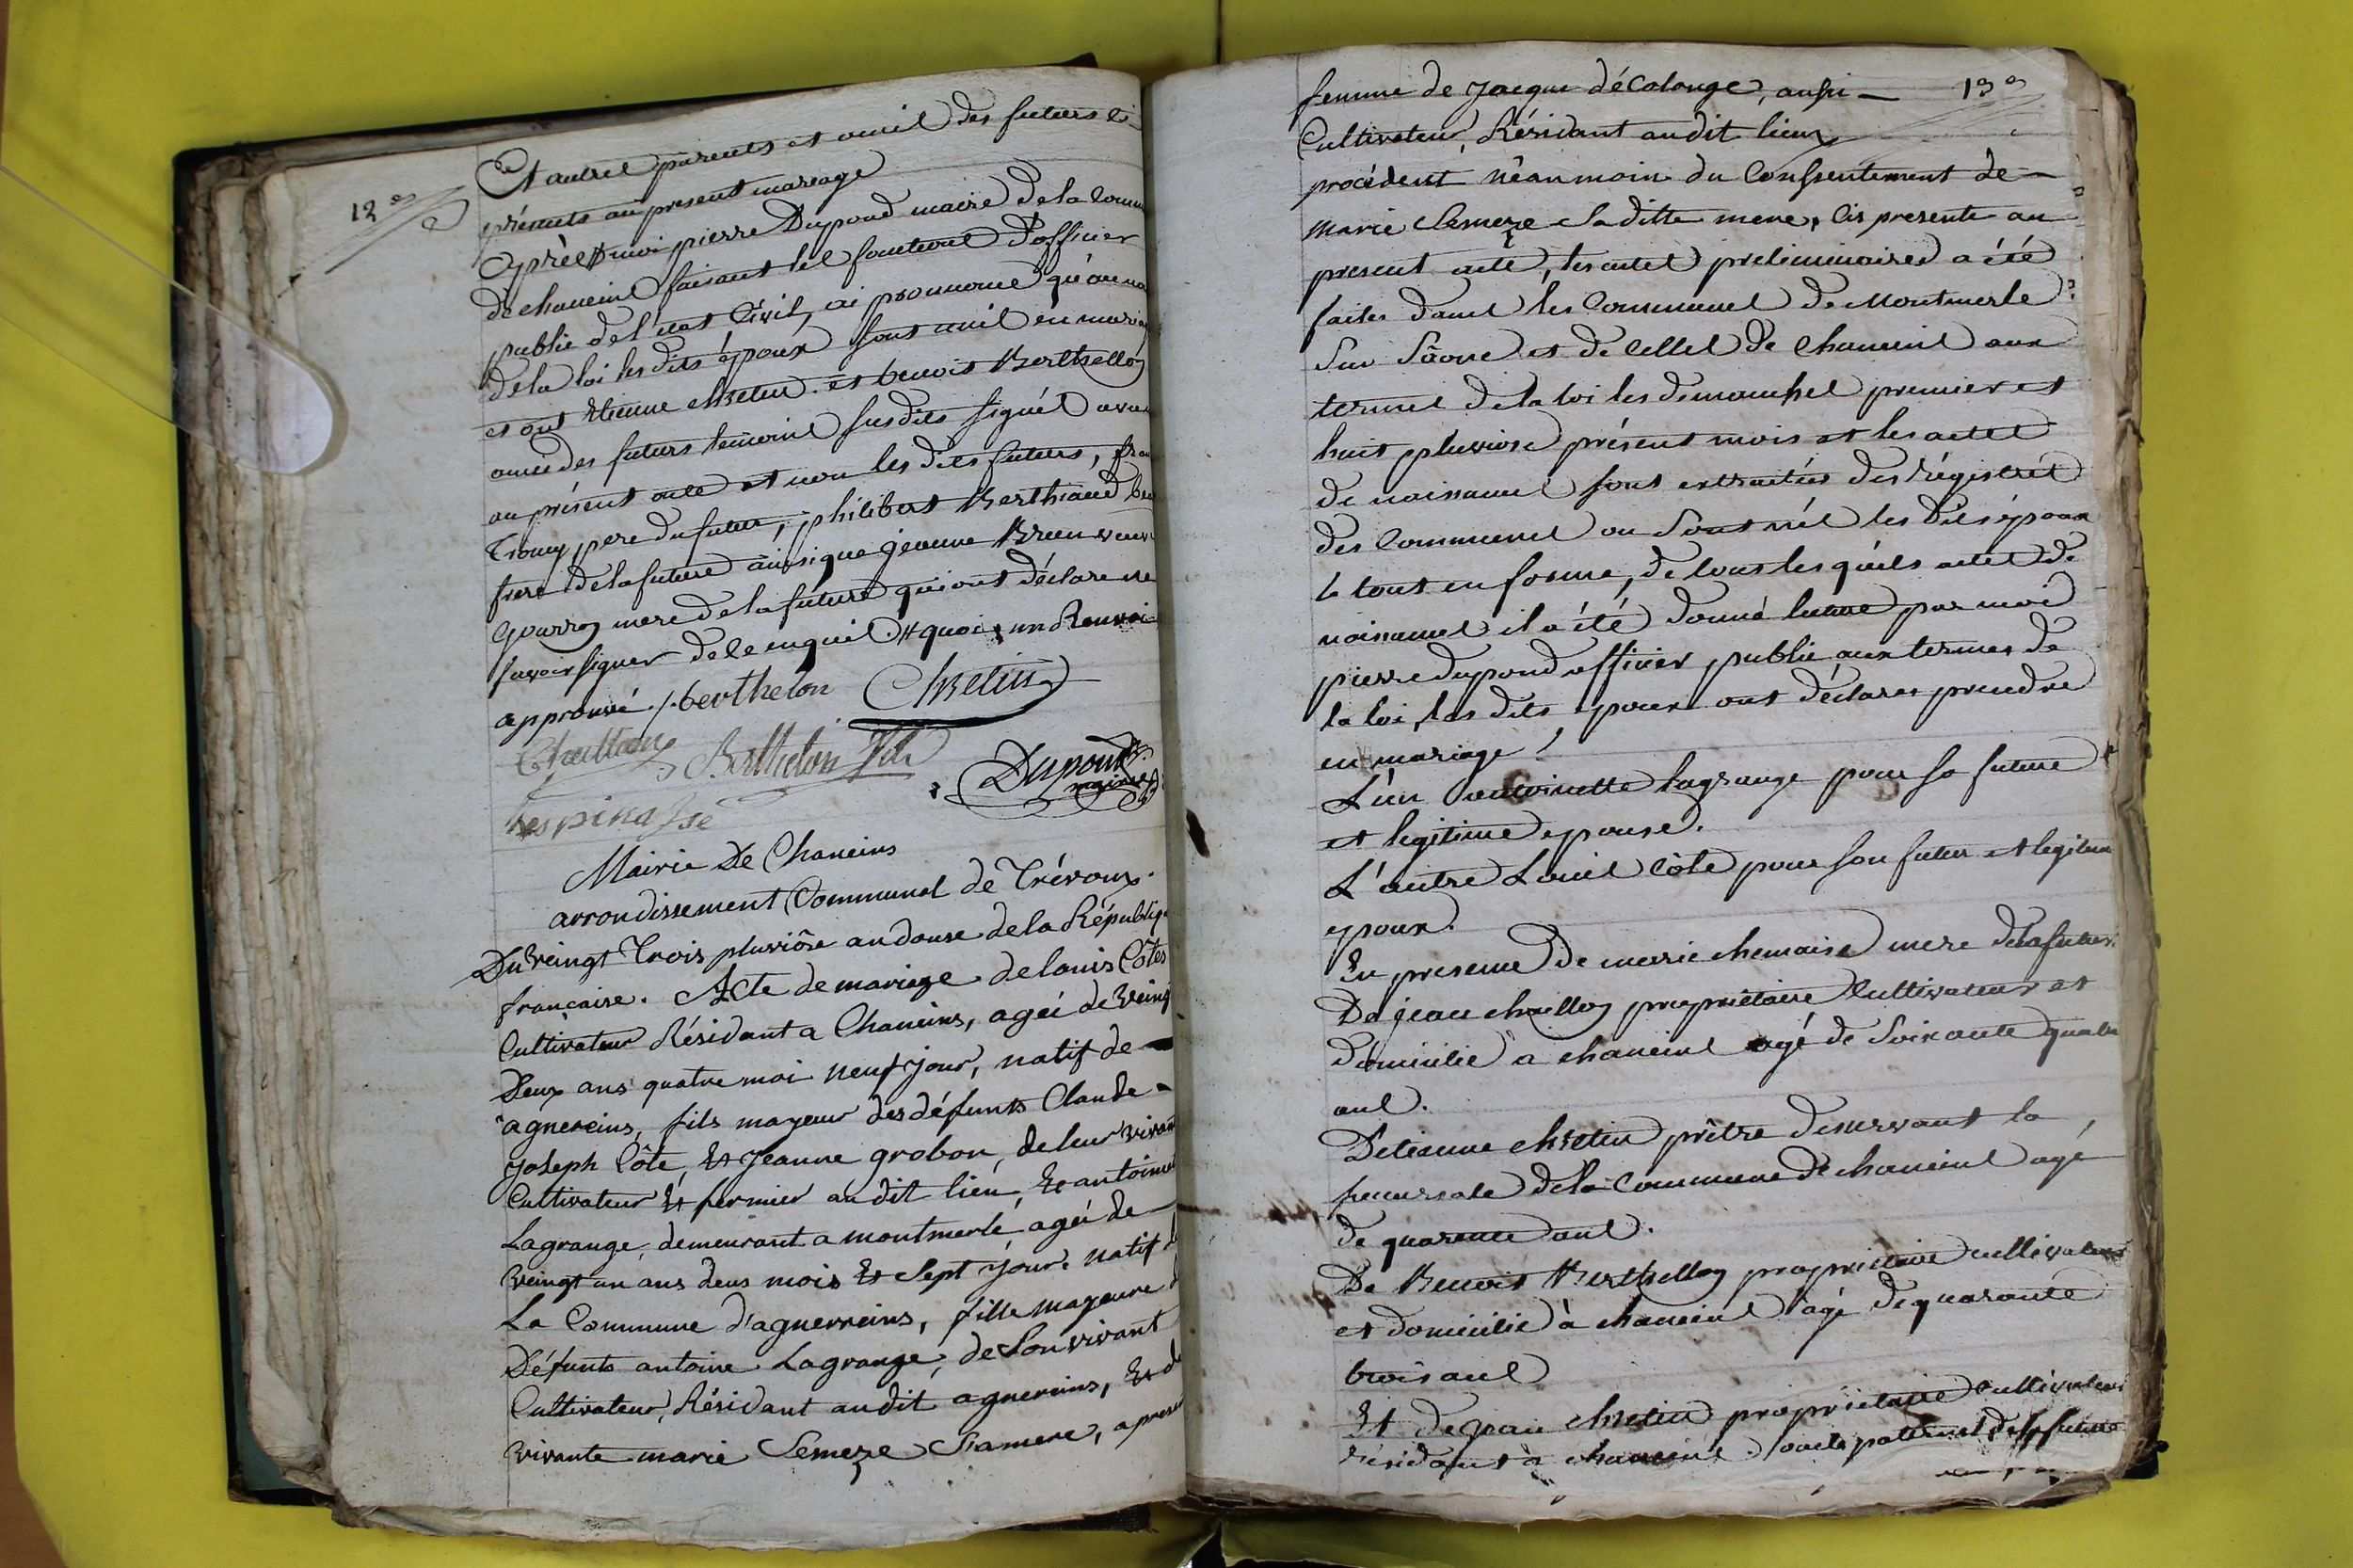 12e
Et autres parents et amis des futurs et
présents au present mariage
Après # moi pierre Dupond maire de la Comm
de chaneins faisant les fonctions d'officier
public de l'état Civil, ai prononcé qu'au no
de la loi les dits époux sont unis en maria
et ont Etienne chretin et benoit Berthellon
amis des futurs témoins susdits signés avec
au présent acte et non les dits futurs, fran
Troncy pere du futur, philibert Berthiaud be
frere de la future ainsique jeanne Brun veuve
Gourron mere de la future qui ont déclaré ne
savoir signer de ce enquis. # quoi, un Renvoi
approuvé ./. berthelon Chretin
Chaillon Berthelon fils
Dupond
maire
Lespinasse
Mairie De Chaneins
arrondissement Communal de Trévoux.
Du Veingt Trois pluviôse an douse de la Républiq
française. Acte de mariage de louis Côtes
Cultivateur Résidant a Chaneins, ageé de Veingt
Deux ans quatre moi neuf jour, natif de
agnereins, fils mayeur des défunts Claude
Joseph Côte, Et Jeanne grobon, de leur vivant
Cultivateur Et fermier au dit lieu, Et antoinet
Lagrange, demeurant a montmerle ageé de
Veingt un ans deus mois Et Sept jour. natif d
La Commune d'aguerreins, fille mayeure d
Défunts antoine Lagrange, de Son vivant
Cultivateur, Résidant au dit agnereins, Et de
vivante marie Semeze Sa mere, a presen
13e
femme de Jacque décolonge, aussi
Cultivateur, Résidant au dit lieu
procédent néanmoin du Consentement de
marie Semeze sa ditte mere, Cis presente au
present acte, les actes preliminaires a été
faites dans les Communes de Montmerle
Sur Sâone et de Celles de Chaneins aux
termes de la loi les dimanches premier et
huit pluviose présent mois et les actes
de naissances sont extraites des régistres
des Communes ou Sont nés les Dits époux
le tout en forme, de tous les quels actes de
naissances il a été donné lecture par moi
pierre dupond officier public aux termes de
la loi, les dits epoux ont déclares prendre
en mariage
L'un antoinette lagrange pour sa future
et legitime epouse.
L'autre Louis Côte pour son futur et legitime
epoux.
En presence De marie chemaise mere de la future
De jean chaillon propriétaire Cultivateur et
domicilié a chaneins agé de Soixante quatre
ans.
D'etienne chretin prêtre desservant la
succursale de la Commune de chaneins agé
de quarante ans.
De Benoit Berthellon propriétaire cultivateur
et domicilié à chaneins agé de quarante
trois ans
Et de jean chretin propriétaire Cultivateur
résidant à chaneins. oncle paternel de la future